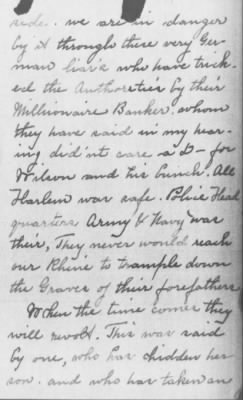 side. we are in danger
by it through these very Ger-
man liar's who have trick-
ed the Authoreties by their
Millionaire Banker, whom
they have said in my hear-
ing did'nt care a D— for
Wilson and his bunch. All
Harlem was safe. Police Head
quarters Army & Navy was
their, They never would reach
our Rhine to trample down
the Graves of their forefathers
When the time comes they
will revolt. This was said
by one, who has chidden her
son. and who has taken an